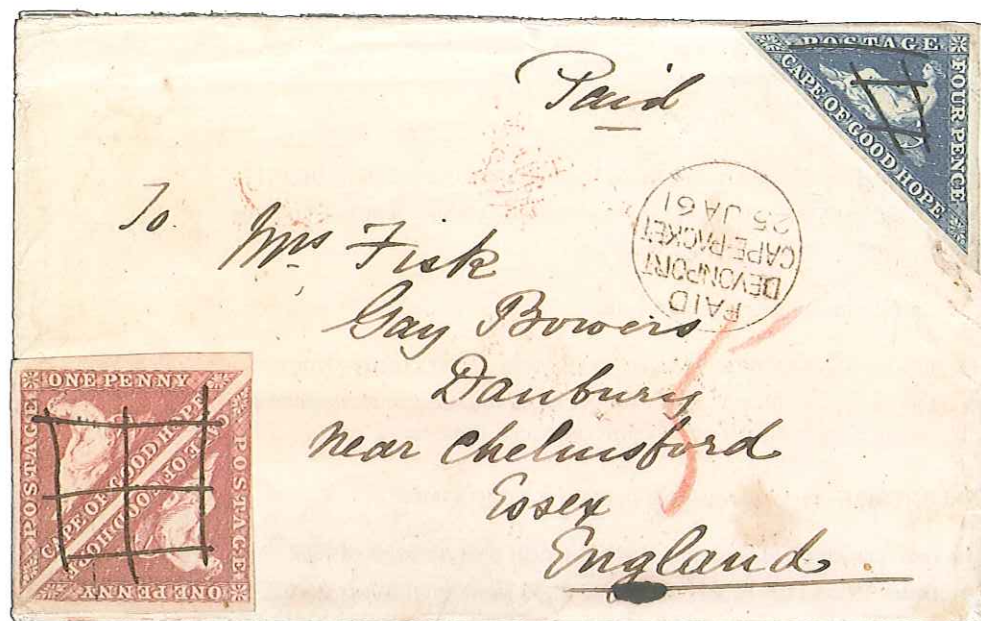 Paid
POSTAGE
FOUR PENCE
CAPE OF GOOD HOPE
PAID
DEVONPORT
CAPE-PACKET
25 JA 61
To
Mrs Fisk
Gay Bowers
Danbury
near Chelmsford
Essex
England
5
ONE PENNY
POSTAGE
CAPE OF GOOD HOPE
CAPE OF GOOD HOPE
POSTAGE
ONE PENNY